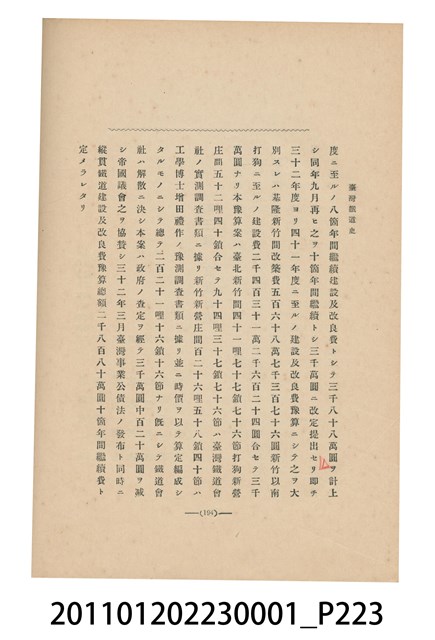 臺灣鐵道史
度ニ至ルノ八箇年間繼續建設及改良費トシテ三千八十八萬圓ヲ計上
シ同年九月再ヒ之ヲ十箇年間繼續トシ三千萬圓ニ改定提出セリ即チ
三十二年度ヨリ四十一年度ニ至ルノ建設及改良費豫算ニシテ之ヲ大
別スレハ基隆新竹間改築費五百六十八萬七千三百七十六圓新竹以南
打狗ニ至ルノ建設費二千四百三十一萬二千六百二十四圓合セテ三千
萬圓ナリ本豫算案ハ臺北新竹間四十一哩七十七鎖七十六節打狗新營
庄間五十二哩四十鎖合セテ九十四哩三十七鎖七十六節ハ臺灣鐵道會
社ノ實測調査書類ニ據リ新竹新營庄間百二十六哩五十八鎖四十節ハ
工學博士增田禮作ノ豫測調査書類ニ據リ並ニ時價ヲ以テ算定編成シ
タルモノニシテ總テ二百二十一哩十六鎖十六節ナリ既ニシテ鐵道會
社ハ解散ニ決シ本案ハ政府ノ査定ヲ經テ三千萬圓中百二十萬圓ヲ減
シ帝國議會之ヲ協贊シ三十二年三月臺灣事業公債法ノ發布ト同時ニ
縱貫鐵道建設及改良費豫算總額二千八百八十萬圓十箇年間繼續費ト
定メラレタリ
(194)
201101202230001_P223